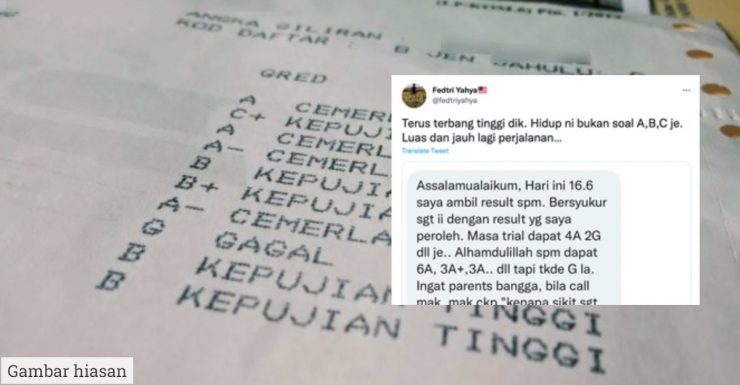 ANGKA GILIRAN :
KOD DAFTAR : B JEN
GRED
A CEMERL
C+ KEPUJI
A CEMERL
A- CEMERL
B KEPUJI
B+ KEPUJIA
A- CEMERLA
G GAGAL
B KEPUJIAN TINGGI
B KEPUJIAN TINGGI
Fedtri Yahya🇲🇾
@fedtriyahya
Terus terbang tinggi dik. Hidup ni bukan soal A,B,C je.
Luas dan jauh lagi perjalanan...
Translate Tweet
Assalamualaikum, Hari ini 16.6
saya ambil result spm. Bersyukur
sgt ii dengan result yg saya
peroleh. Masa trial dapat 4A 2G
dll je.. Alhamdulillah spm dapat
6A, 3A+,3A.. dll tapi tkde G la.
Ingat parents bangga, bila call
mak, mak ckp "kenapa sikit sgt
Gambar hiasan